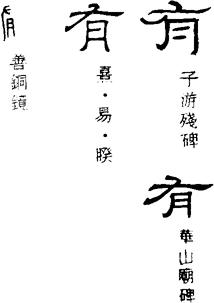 有
子游殘碑
有
華山廟碑
有
熹·易·睽
有
善銅鏡